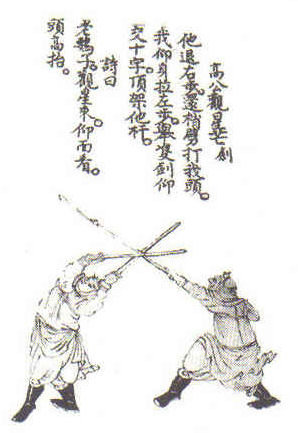 高公觀星芒劍
他退右步。還梢劈打我頭。
我仰身拉左步。舉雙劍仰
交十字。頂架他杆。
詩曰
老觀星来。仰面看。
頭高抬。